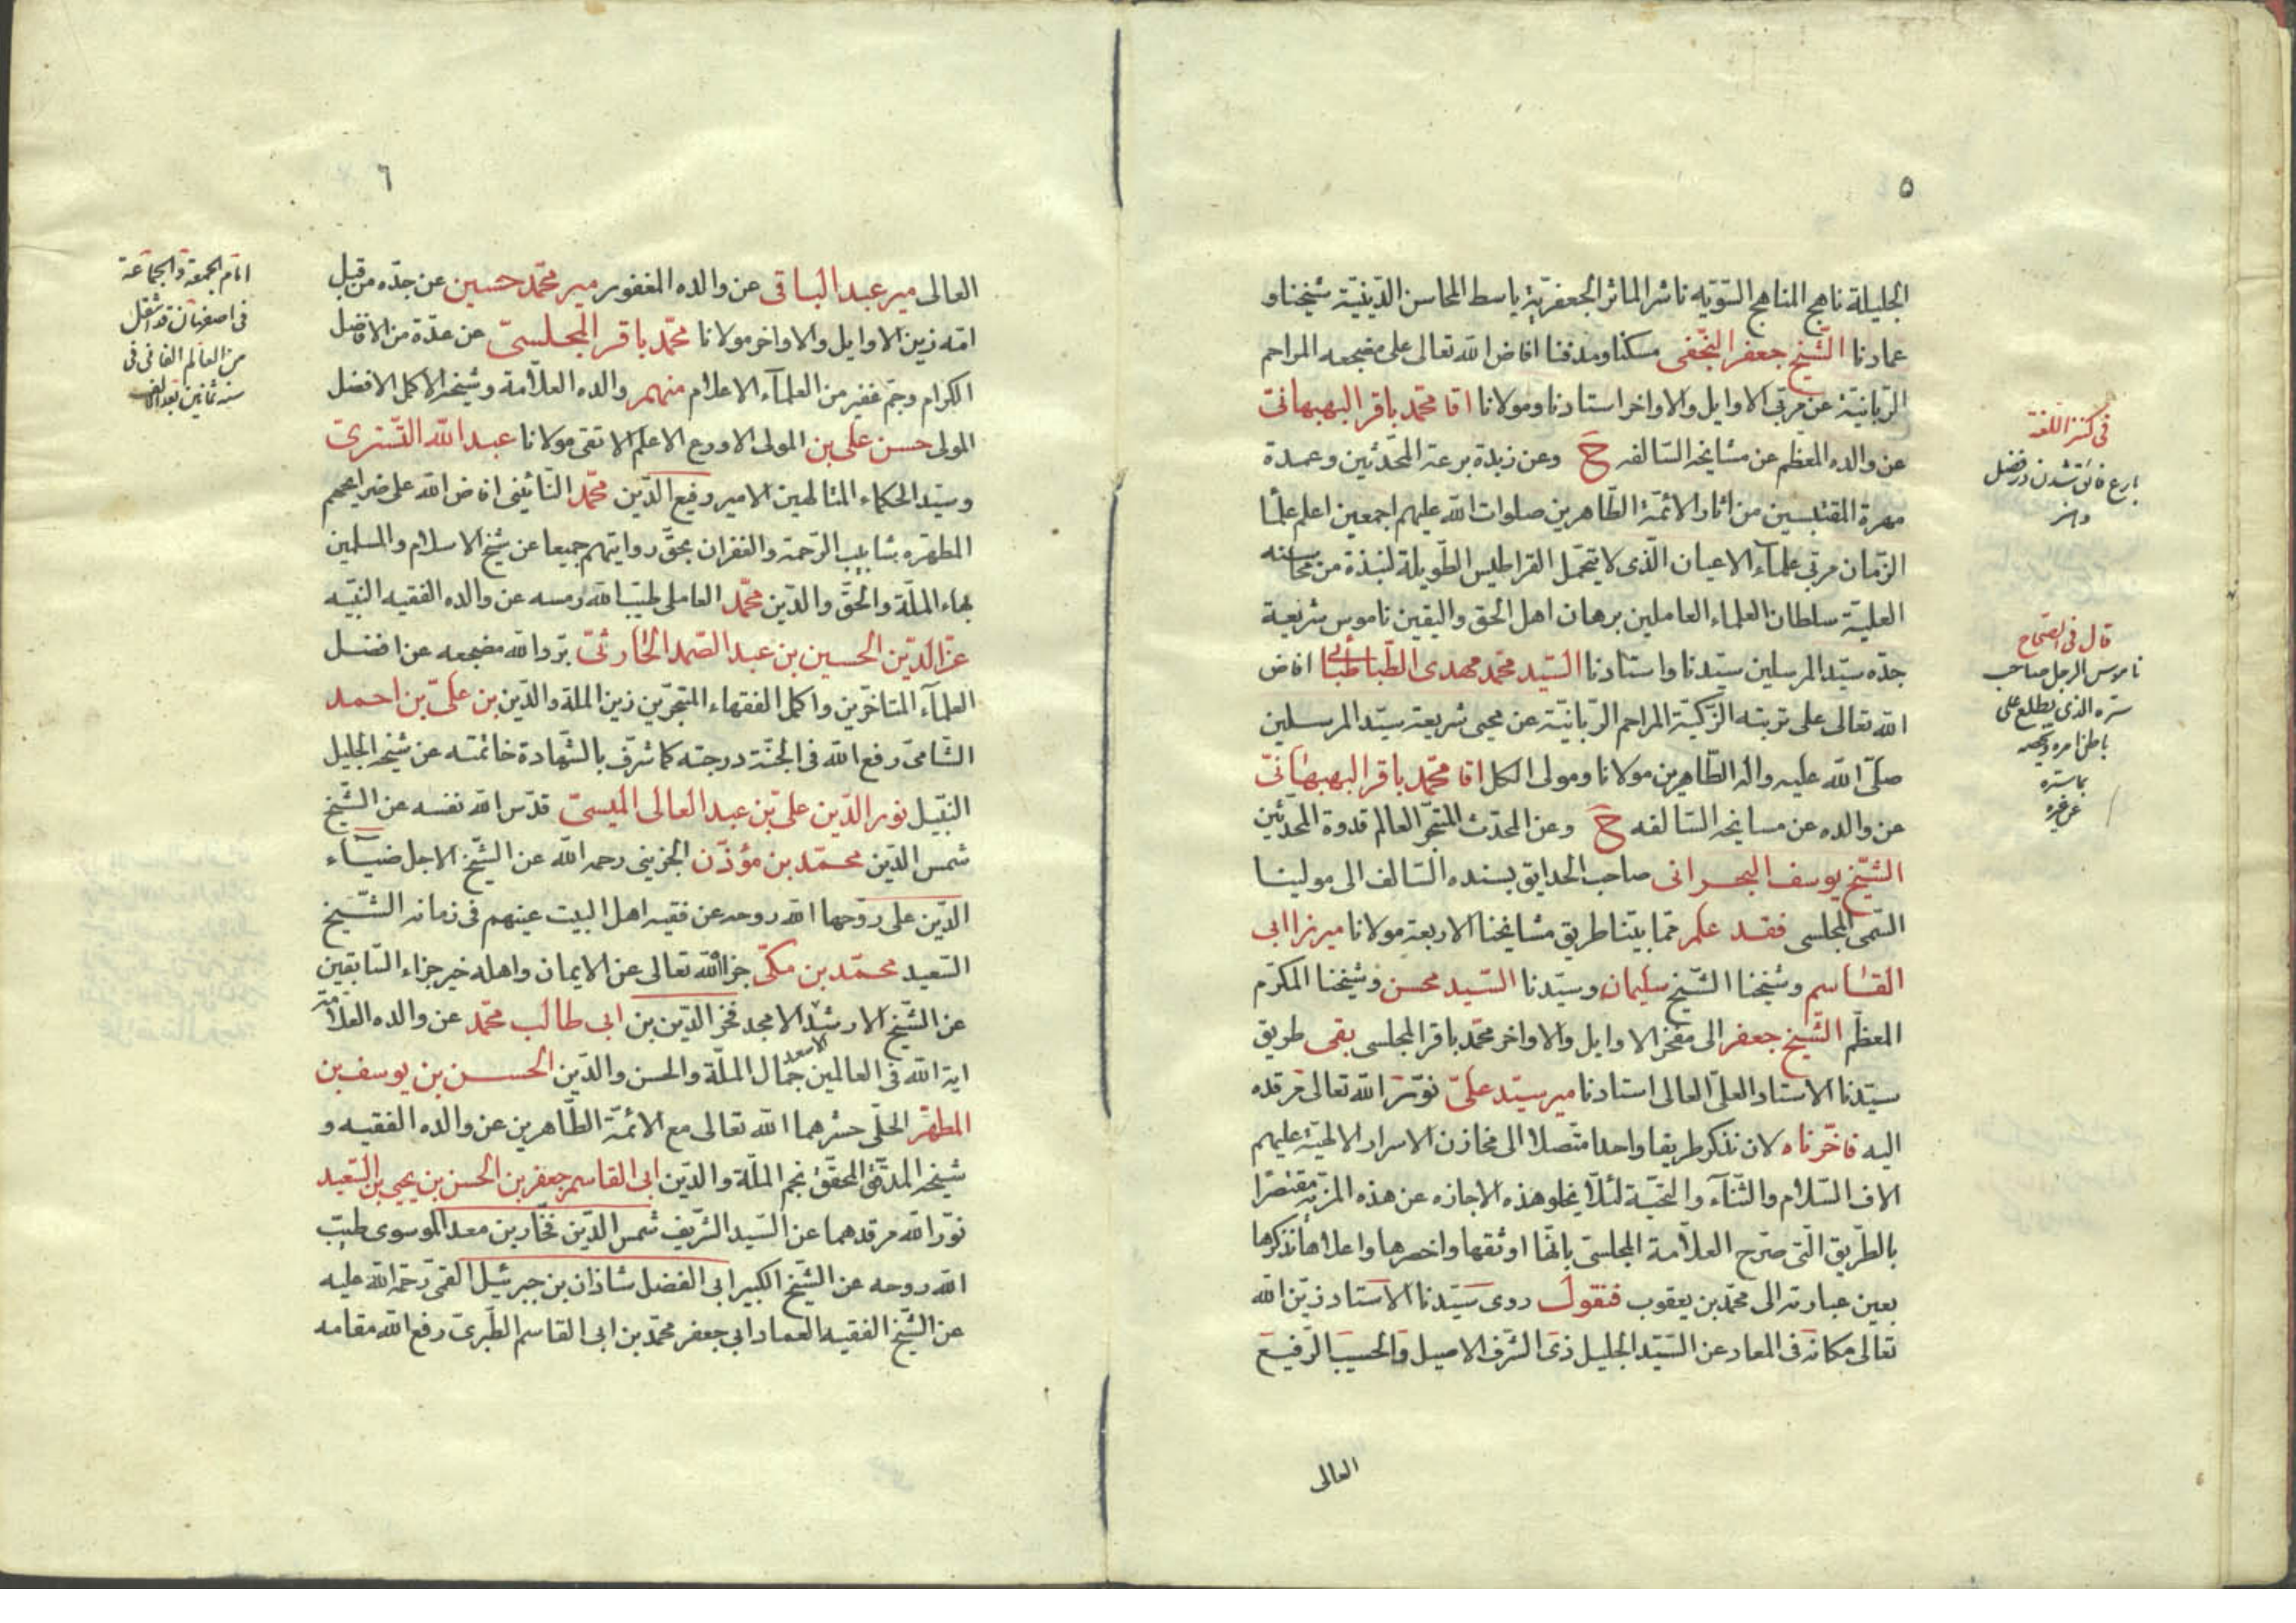 ٥
الجليلة ناهج المناهج السّويّه ناشر الماثر الجعفريّة باسط المحاسن الدّينيّة شيخنا و
عمادنا الشّيخ جعفر النّجفى مسكنا ومدفنا افاض الله تعالى على مضجعه المراحم
الرّبانيّة عن مربّى الاوايل والاواخر استادنا ومولانا اقا محمّد باقر البهبهانىّ
عن والده المعظّم عن مشايخه السّالفه ح وعن زبدة برعة المحدّثين وعمدة
مهرة المقتبسين من اثار الائمّة الطّاهرين صلوات الله عليهم اجمعين اعلم علمآ
الزّمان مربّى علمآء الاعيان الّذى لا يتحمّل القراطيس الطّويلة لنبذة من محاسنه
العليّة سلطان العلماء العاملين برهان اهل الحق واليقين ناموس شريعة
جدّه سيّد المرسلين سيّدنا واستادنا السّيد محمّد مهدى الطّباطبائى افاض
الله تعالى على تربته الزّكيّة المراحم الرّبانيّة عن محيى شريعة سيّد المرسلين
صلّى الله عليه واله الطّاهرين مولانا ومولى الكل اقا محمّد باقر البهبهانىّ
عن والده عن مشايخه السّالفه ح وعن المحدّث المتبحّر العالم قدوة المحدّثين
الشّيخ يوسف البحرانى صاحب الحدايق بسنده السّالف الى مولينا
السّمى المجلسى فقد علم ممّا بيّنا طريق مشايخنا الاربعة مولانا ميرزا ابى
القاسم وشيخنا الشّيخ سليمان وسيّدنا السّيد محسن وشيخنا المكرّم
المعظّم الشّيخ جعفر الى مفخر الاوايل والاواخر محمّد باقر المجلسى بقى طريق
سيّدنا الاستاد العلىّ العالى استادنا مير سيّد علىّ نوّر الله تعالى مرقده
اليه فاخّرناه لان نذكر طريقا واحدا متّصلا الى مخازن الاسرار الالهيّة عليهم
الاف السّلام والثّنآء والتحيّة لئلّا يخلو هذه الاجازه عن هذه المزيّة مقتصرا
بالطّريق الّتى صرّح العلّامة المجلسىّ بانّها اوثقها واخصرها واعلاها نذكرها
بعين عبارته الى محمّد بن يعقوب فنقول روى سيّدنا الاستاد زيّن الله
تعالى مكانه فى المعاد عن السّيّد الجليل ذى الشّرف الاصيل والحسب الرّفيع
العالى
فى كنز اللغة
بارع فائق شدن در فضل
وهنر
قال فى الصّحاح
ناموس الرجل صاحب
سرّه الذى يطلع على
باطن امره ويخصه
بما ستره
عن غيره
٦
العالى مير عبد الباقى عن والده المغفور مير محمّد حسين عن جدّه من قبل
امّه زين الاوايل والاواخر مولانا محمّد باقر المجلسىّ عن عدّة من الافاضل
الكرام وجمّ غفير من العلمآء الاعلام منهم والده العلّامة وشيخه الاكمل الافضل
المولى حسن على بن المولى الاورع الاعلم الاتقى مولانا عبد الله التّسترى
وسيّد الحكماء المتالهين الامير رفيع الدّين محمّد النّائينى افاض الله على ضرايحهم
المطهّره شابيب الرّحمة والغفران بحقّ روايتهم جميعا عن شيخ الاسلام والمسلمين
بهاء الملّة والحقّ والدّين محمّد العاملى طيّب الله رمسه عن والده الفقيه النبّيه
عزّ الدّين الحسين بن عبد الصّمد الحارثىّ برّد الله مضجعه عن افضل
العلمآء المتاخّرين واكمل الفقهاء المتبحّرين زين الملة والدّين بن علىّ بن احمد
الشّامىّ رفع الله فى الجنّة درجته كما شرّف بالشّهادة خاتمته عن شيخه الجليل
النّبيل نور الدّين علىّ بن عبد العالى الميسىّ قدّس الله نفسه عن الشّيخ
شمس الدّين محمّد بن مؤذّن الجزينى رحمه الله عن الشّيخ الاجل ضياء
الدّين على روّحها الله روحه عن فقيه اهل البيت عينهم فى زمانه الشّيخ
السّعيد محمّد بن مكّى جزاه الله تعالى عن الايمان واهله خير جزاء السّابقين
عن الشّيخ الارشد الامجد فخر الدّين بن ابى طالب محمّد عن والده العلّامة
اية الله فى العالمين جمال الملّة والحسن والدّين الحسن بن يوسف بن
الاسعد
المطهّر الحلّى حشرهما الله تعالى مع الائمّة الطّاهرين عن والده الفقيه و
شيخه المدقّق المحقّق نجم الملّة والدّين ابى القاسم جعفر بن الحسن بن يحيى بن السّعيد
نوّر الله مرقدهما عن السّيد الشّريف شمس الدّين فخار بن معد الموسوى طيّب
الله روحه عن الشّيخ الكبير ابى الفضل شاذان بن جبرئيل القمّى رحمة الله عليه
عن الشّيخ الفقيه العماد ابى جعفر محمّد بن ابى القاسم الطّبرىّ رفع الله مقامه
امام الجمعة والجماعة
فى اصفهان قد انتقل
من العالم الفانى فى
سنه ثمانين بعد الالف